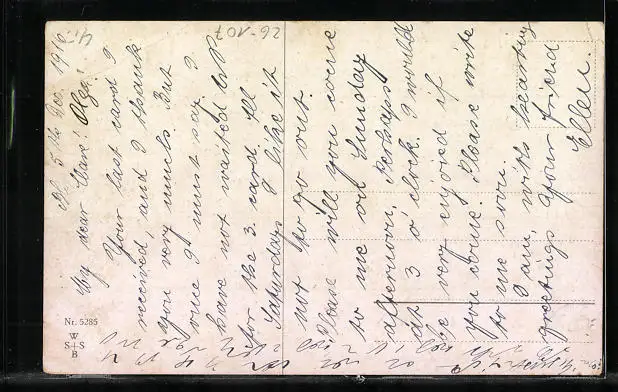 5/12 Dec. 1916.
My dear Clara! Olga!
Your last card I
received, and I thank
you very much. But
one I must say I
have not waited
for the 3. card. All
Saturdays I like it
not to go out.
Please will you come
to me on Sunday
afternoon, Perhaps
at 3 o'clock. I would
be very enjoied if
you come. Please write
to me soon.
I am, with hearting
greetings Your friend
Ellen.
26-107
Nr. 5285
W
S+S
B